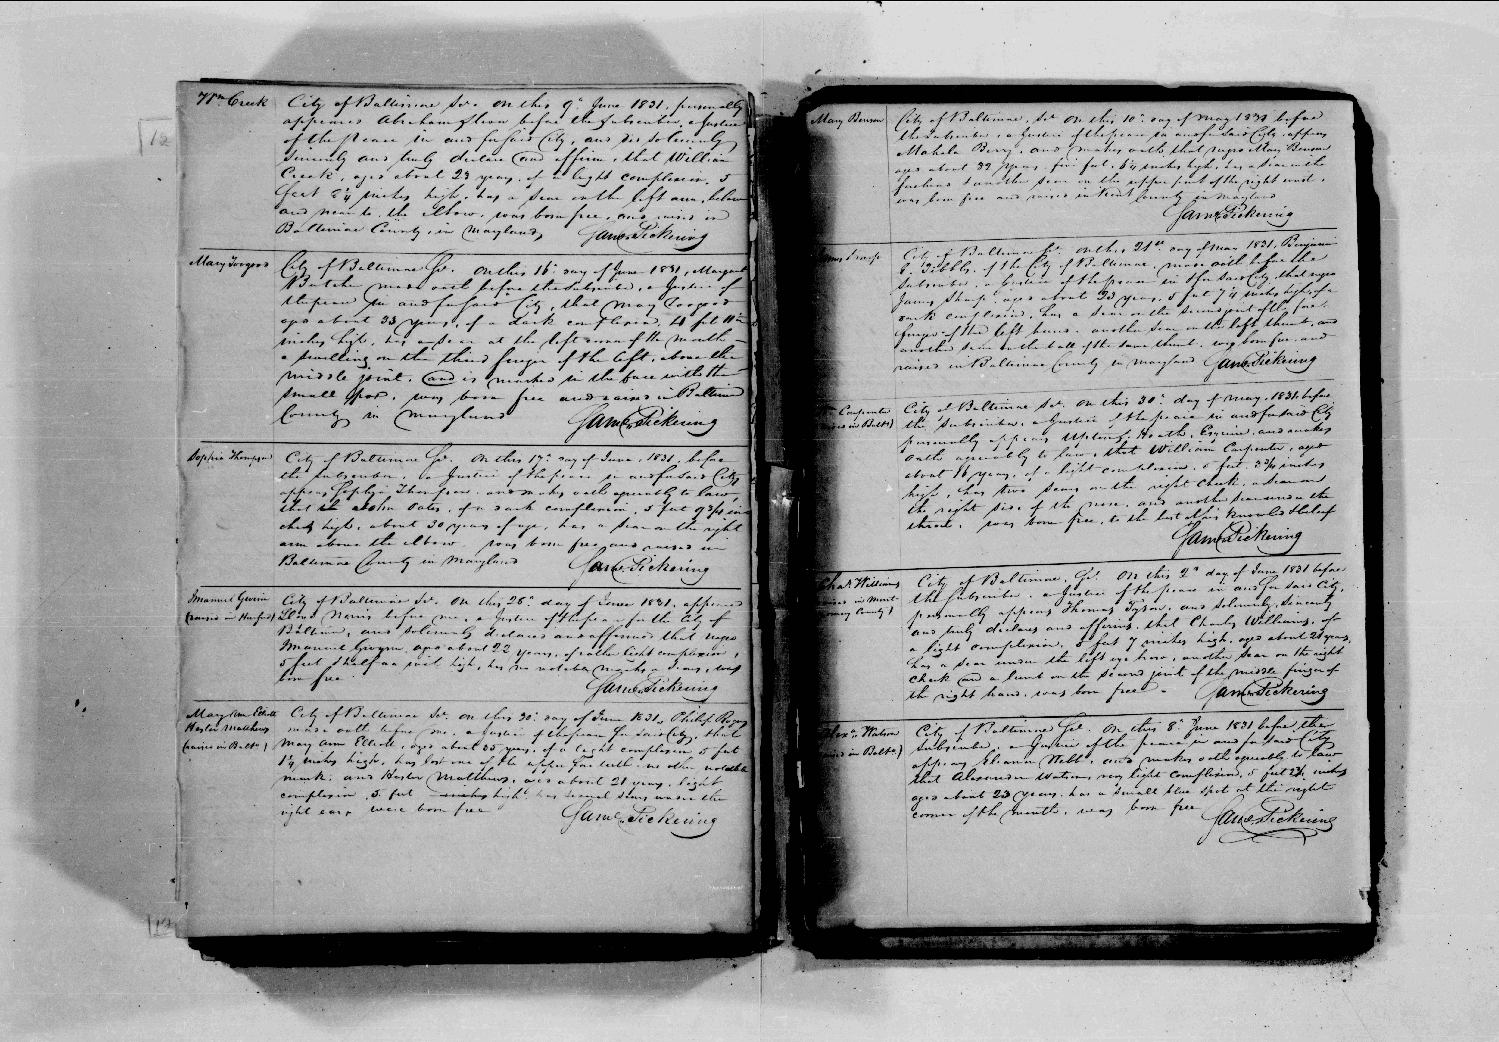 Wm Creek
City of Baltimore Sc. On this 9th June 1831, personally
appeared Abraham before the Subscriber, a Justice
of the Peace in and for said City, and did solemnly
sincerely and truly declare and affirm, that William
Creek, aged about 23 years, of a light complexion, 5
feet inches high, has a Scar on the left arm, below
and near to the Elbow, was born free, and raised in
Baltimore County, in Maryland, James Pickering
Mary Toogood
City of Baltimore Sc. On this 16th day of June 1831, Margaret
Butcher made oath before the Subscriber, a Justice of
the peace in and for said City, that Mary Toogood
aged about 33 years, of a dark complexion, 4 feet 11
inches high, has a Scar at the left corner of the mouth
a swelling on the third finger of the left, above the
middle joint, and is marked in the face with the
small pox, was born free and raised in Baltimore
County in Maryland James Pickering
Sophia Thompson
City of Baltimore Sc. On this 17th day of June 1831, before
the subscriber, a Justice of the peace in and for said City
appears Sophia Thompson, and makes oath agreeably to law,
that Oates, of a dark complexion, 5 feet in
ches high, about 30 years of age, has a Scar on the right
arm above the Elbow, was born free and raised in
Baltimore County in Maryland James Pickering
Emanuel Gwinn
(raised in Harford)
City of Baltimore Sc. On this 28th day of June 1831, appeared
Norris before me, a Justice of the peace for the City of
Baltimore, and solemnly declares and affirmed that negro
Emanuel Gwynn, aged about 22 years, of rather light complexion,
5 feet & half an inch high, has no notable marks or Scars, was
born free. James Pickering
Mary Ann Elliott
Hester Matthews
(raised in Balto.)
City of Baltimore Sc. On this 30th day of June 1831, Philip Rogers
made oath before me, a Justice of the peace for said City, that
Mary Ann Elliott, aged about 35 years, of a light complexion 5 feet
1¼ inches high, has lost one of the upper fore teeth, no other notable
mark; and Hester Matthews, aged about 21 years, light
complexion, 5 feet high, has several Scars under the
right ear, were born free. James Pickering
Mary Benson
City of Baltimore, Sc. On this 10th day of May 1831 before
the subscriber, a Justice of the peace in and for said City, appears
Mahala Berry, and makes oath, that negro Mary Benson
aged about 32 years, five feet, inches high, has a Scar on the
forehead & another Scar on the upper part of the right wrist,
was born free and raised in Kent County in Maryland
James Pickering
City of Baltimore Sc. On this 21st day of May 1831, Benjamin
of the City of Baltimore, made oath before the
Subscriber, a Justice of the peace in & for said City, that negro
James aged about 33 years, 5 feet 7¼ inches high, of a
dark complexion, has a Scar on the second joint of the fore
finger of the left hand, another Scar on the left thumb, and
another Scar on the ball of the same thumb, was born free, and
raised in Baltimore County in Maryland James Pickering
Wm Carpenter
(raised in Balto)
City of Baltimore Sc. On this 30th day of May, 1831, before
the subscriber, a Justice of the peace in and for said City
personally appears Upton S. Heath, Esquire, and makes
oath agreeably to law, that William Carpenter, aged
about 16 years, of a light complexion, 5 feet inches
high, has two Scars on the right cheek, a Scar on
the right side of the nose, and another Scar under the
throat, was born free, to the best of his knowledge & belief
James Pickering
Chas. Williams
(raised in Mont-
gomery County)
City of Baltimore, Sc. On this 2nd day of June 1831 before
the Subscriber, a Justice of the peace in and for said City,
personally appears Thomas Tyson, and solemnly, Sincerely
and truly declares and affirms, that Charles Williams, of
a light complexion, 5 feet 7 inches high, aged about 21 years,
has a Scar under the left eye brow, another Scar on the right
cheek and a lump on the Second joint of the middle finger of
the right hand, was born free. James Pickering
Alexr. Watson
(raised in Balto.)
City of Baltimore Sc. On this 8th June 1831 before the
Subscriber, a Justice of the peace in and for said City
appears Eleanor Webb, and makes oath agreeably to law
that Alexander Watson, very light complexion, 5 feet inches
aged about 23 years, has a small blue spot at the right
corner of the mouth, was born free James Pickering